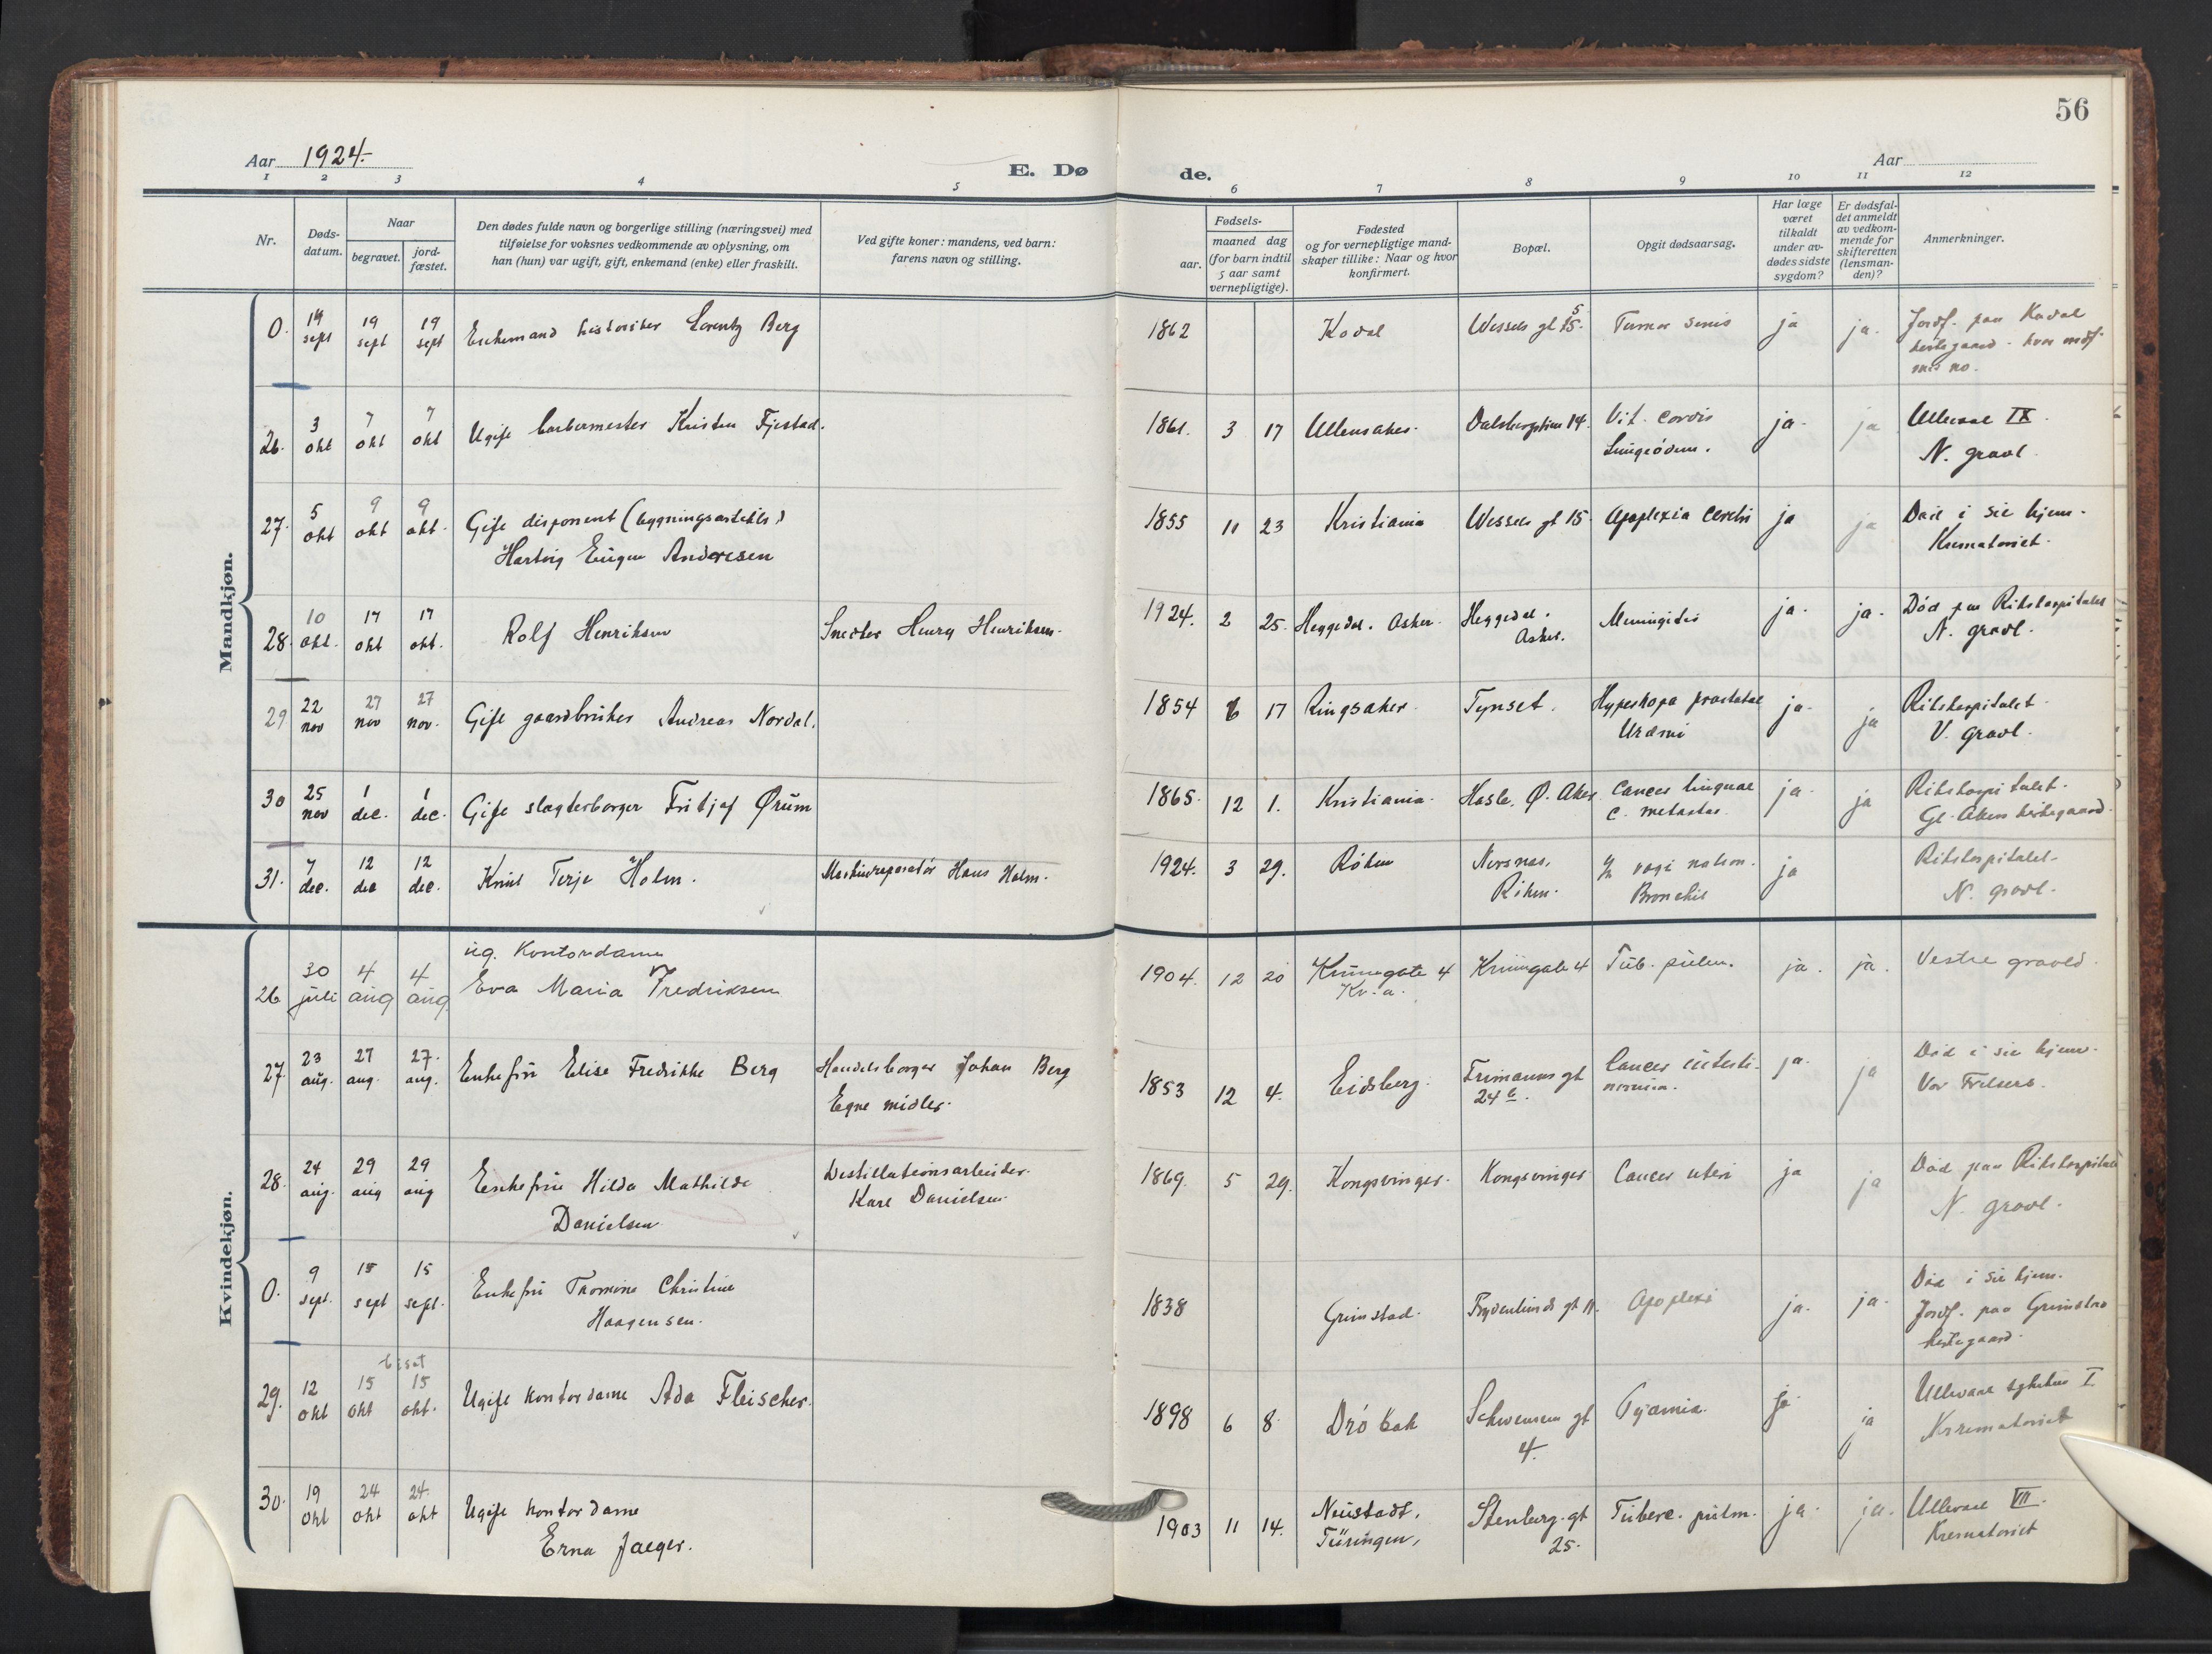 56
Aar 1924.
E. Døde.
Aar
1 2 3 4 5 6 7 8 9 10 11 12
Nr.
Dødsdatum.
Naar
begravet.
jordfæstet.
Den dødes fulde navn og borgerlige stilling (næringsvei) med
tilføielse for voksnes vedkommende av oplysning, om
han (hun) var ugift, gift, enkemand (enke) eller fraskilt.
Ved gifte koner: mandens, ved barn:
farens navn og stilling.
Fødsels-
aar.
maaned dag
(for barn indtil
5 aar samt
vernepligtige).
Fødested
og for vernepligtige mand-
skaper tillike: Naar og hvor
konfirmert.
Bopæl.
Opgit dødsaarsag.
Har læge
været
tilkaldt
under av-
dødes sidste
sygdom?
Er dødsfal-
det anmeldt
av vedkom-
mende for
skifteretten
(lensman-
den)?
Anmerkninger.
Mandkjøn.
0. 14 sept 19 sept 19 sept Enkemand historiker Lorentz Berg 1862 Kodal Wessels gt 15. 5 Tumor ja ja. Jordf. paa Kodal
kirkegaard - hvor indf.
26. 3 okt 7 okt 7 okt Ugift barbermester Kristen Fjestad. 1861. 3 17 Ullensaker. Dalsbergstien 14. Vit. cordis
Lungeödem. ja. ja Ullevaal IX
N. gravl.
27. 5 okt 9 okt 9 okt. Gift disponent (bygningsarkitekt)
Hartvig Eugen Andresen 1855 11 23 Kristiania Wessels gt 15 Apoplexia cerebri ja ja Død i sit hjem.
Krematoriet.
28. 10 okt. 17 okt 17 okt. Rolf Henriksen Snedker Henry Henriksen. 1924. 2 25. Heggedal. Asker. Heggedal.
Asker. Meningitis ja. ja. Död paa Rikshospitalet
N. gravl.
29 22 nov 27 nov 27 nov. Gift gaardbruker Andreas Nordal. 1854 6 17 Ringsaker. Tynset. Prostatae
Urämi ja. ja Rikshospitalet.
V. gravl.
30 25 nov 1 dec. 1 dec. Gift slagterborger Fritjof Ørum 1865. 12 1. Kristiania. Hasle, Ø. Aker Cancer linguae
c. metastas. ja. ja Rikshospitalet.
Gl. Akers kirkegaard.
31. 7 dec. 12 dec 12 dec. Knut Terje Holm. Maskinreparatör Hans Holm. 1924. 3 29. Röken Nersnes,
Röken. Bronchit ja Rikshospitalet.
N. gravl.
Kvindekjøn.
26 30 juli 4 aug 4 aug. ug. Kontordame
Eva Maria Fredriksen 1904. 12 20 Krumgate 4
Kr.a. Krumgate 4 Tub. pulm. ja. ja. Vestre gravld.
27. 23 aug. 27 aug. 27. aug. Enkefru Elise Fredrikke Berg Handelsborger Johan Berg
Egne midler. 1853 12 4. Eidsberg. Frimanns gt
24 b. Cancer intesti-
norum. ja. ja Död i sit hjem.
Vor Frelsers.
28. 24 aug. 29 aug 29 aug Enkefru Hilda Mathilde
Danielsen Destillationsarbeider.
Karl Danielsen 1869. 5 29. Kongsvinger. Kongsvinger Cancer uteri ja ja Död paa Rikshospitalet
N. gravl.
0. 9 sept. 15 sept 15 sept. Enkefru Thomine Christine
Haagensen. 1838 Grimstad. Frydenlunds gt 11. Apoplexi ja. ja. Död i sit hjem.
Jordf. paa Grimstad
kirkegaard.
biset
29. 12 okt 15 okt 15 okt. Ugift kontordame Ada Fleischer. 1898 6 8 Dröbak Schwensens gt
4. Pyämia. ja. ja Ullevaal sykehus I
Krematoriet
30. 19 okt 24 okt 24. okt Ugift kontordame
Erna Jaeger. 1903 11 14. Neustadt,
Türingen, Stenberg. gt
25. Tuberc. pulm. ja. ja. Ullevaal VII.
Krematoriet